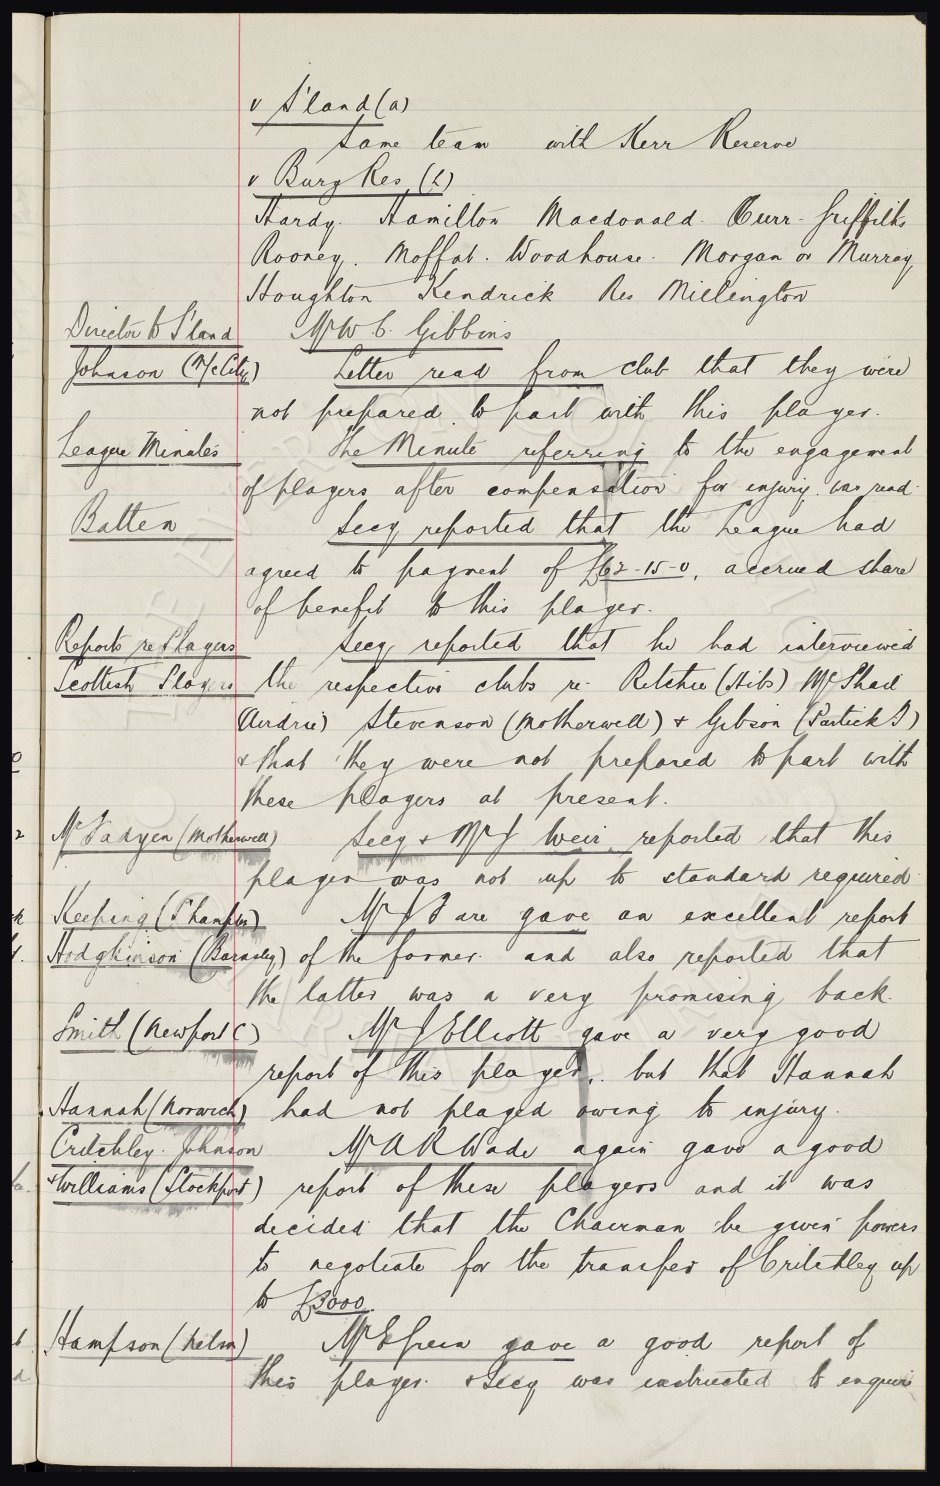 v S'land (a)
Same team with Kerr Reserve
v Bury Res (h)
Hardy. Hamilton Macdonald. Curr. Griffiths
Rooney. Moffat. Woodhouse. Morgan or Murray
Houghton Kendrick Res Millington
Director to S'land Mr W C. Gibbins
Johnson (M/c City) Letter read from club that they were
not prepared to part with this player.
League Minutes The Minute referring to the engagement
of players after compensation for injury was read.
Batten Secy reported that the League had
agreed to payment of £62-15-0, accrued share
of benefit to this player.
Reports re Players Secy reported that he had interviewed
Scottish Players the respective clubs re Ritchie (Hibs) McPhail
(Airdrie) Stevenson (Motherwell) & Gibson (Partick T)
& that they were not prepared to part with
these players at present.
McFadyen (Motherwell) Secy & Mr J. Weir reported that this
player was not up to standard required
Keeping (S'hampton) Mr J Fare gave an excellent report
Hodgkinson (Barnsley) of the former and also reported that
the latter was a very promising back.
Smith (Newport C) Mr J Elliott gave a very good
report of this player, but that Hannah
Hannah (Norwich) had not played owing to injury.
Critchley. Johnson Mr A R Wade again gave a good
& Williams (Stockport) report of these players and it was
decided that the Chairman be given powers
to negotiate for the transfer of Critchley up
to £3000.
Hampson (Nelson) Mr E Green gave a good report of
this player. & Secy was instructed to enquire